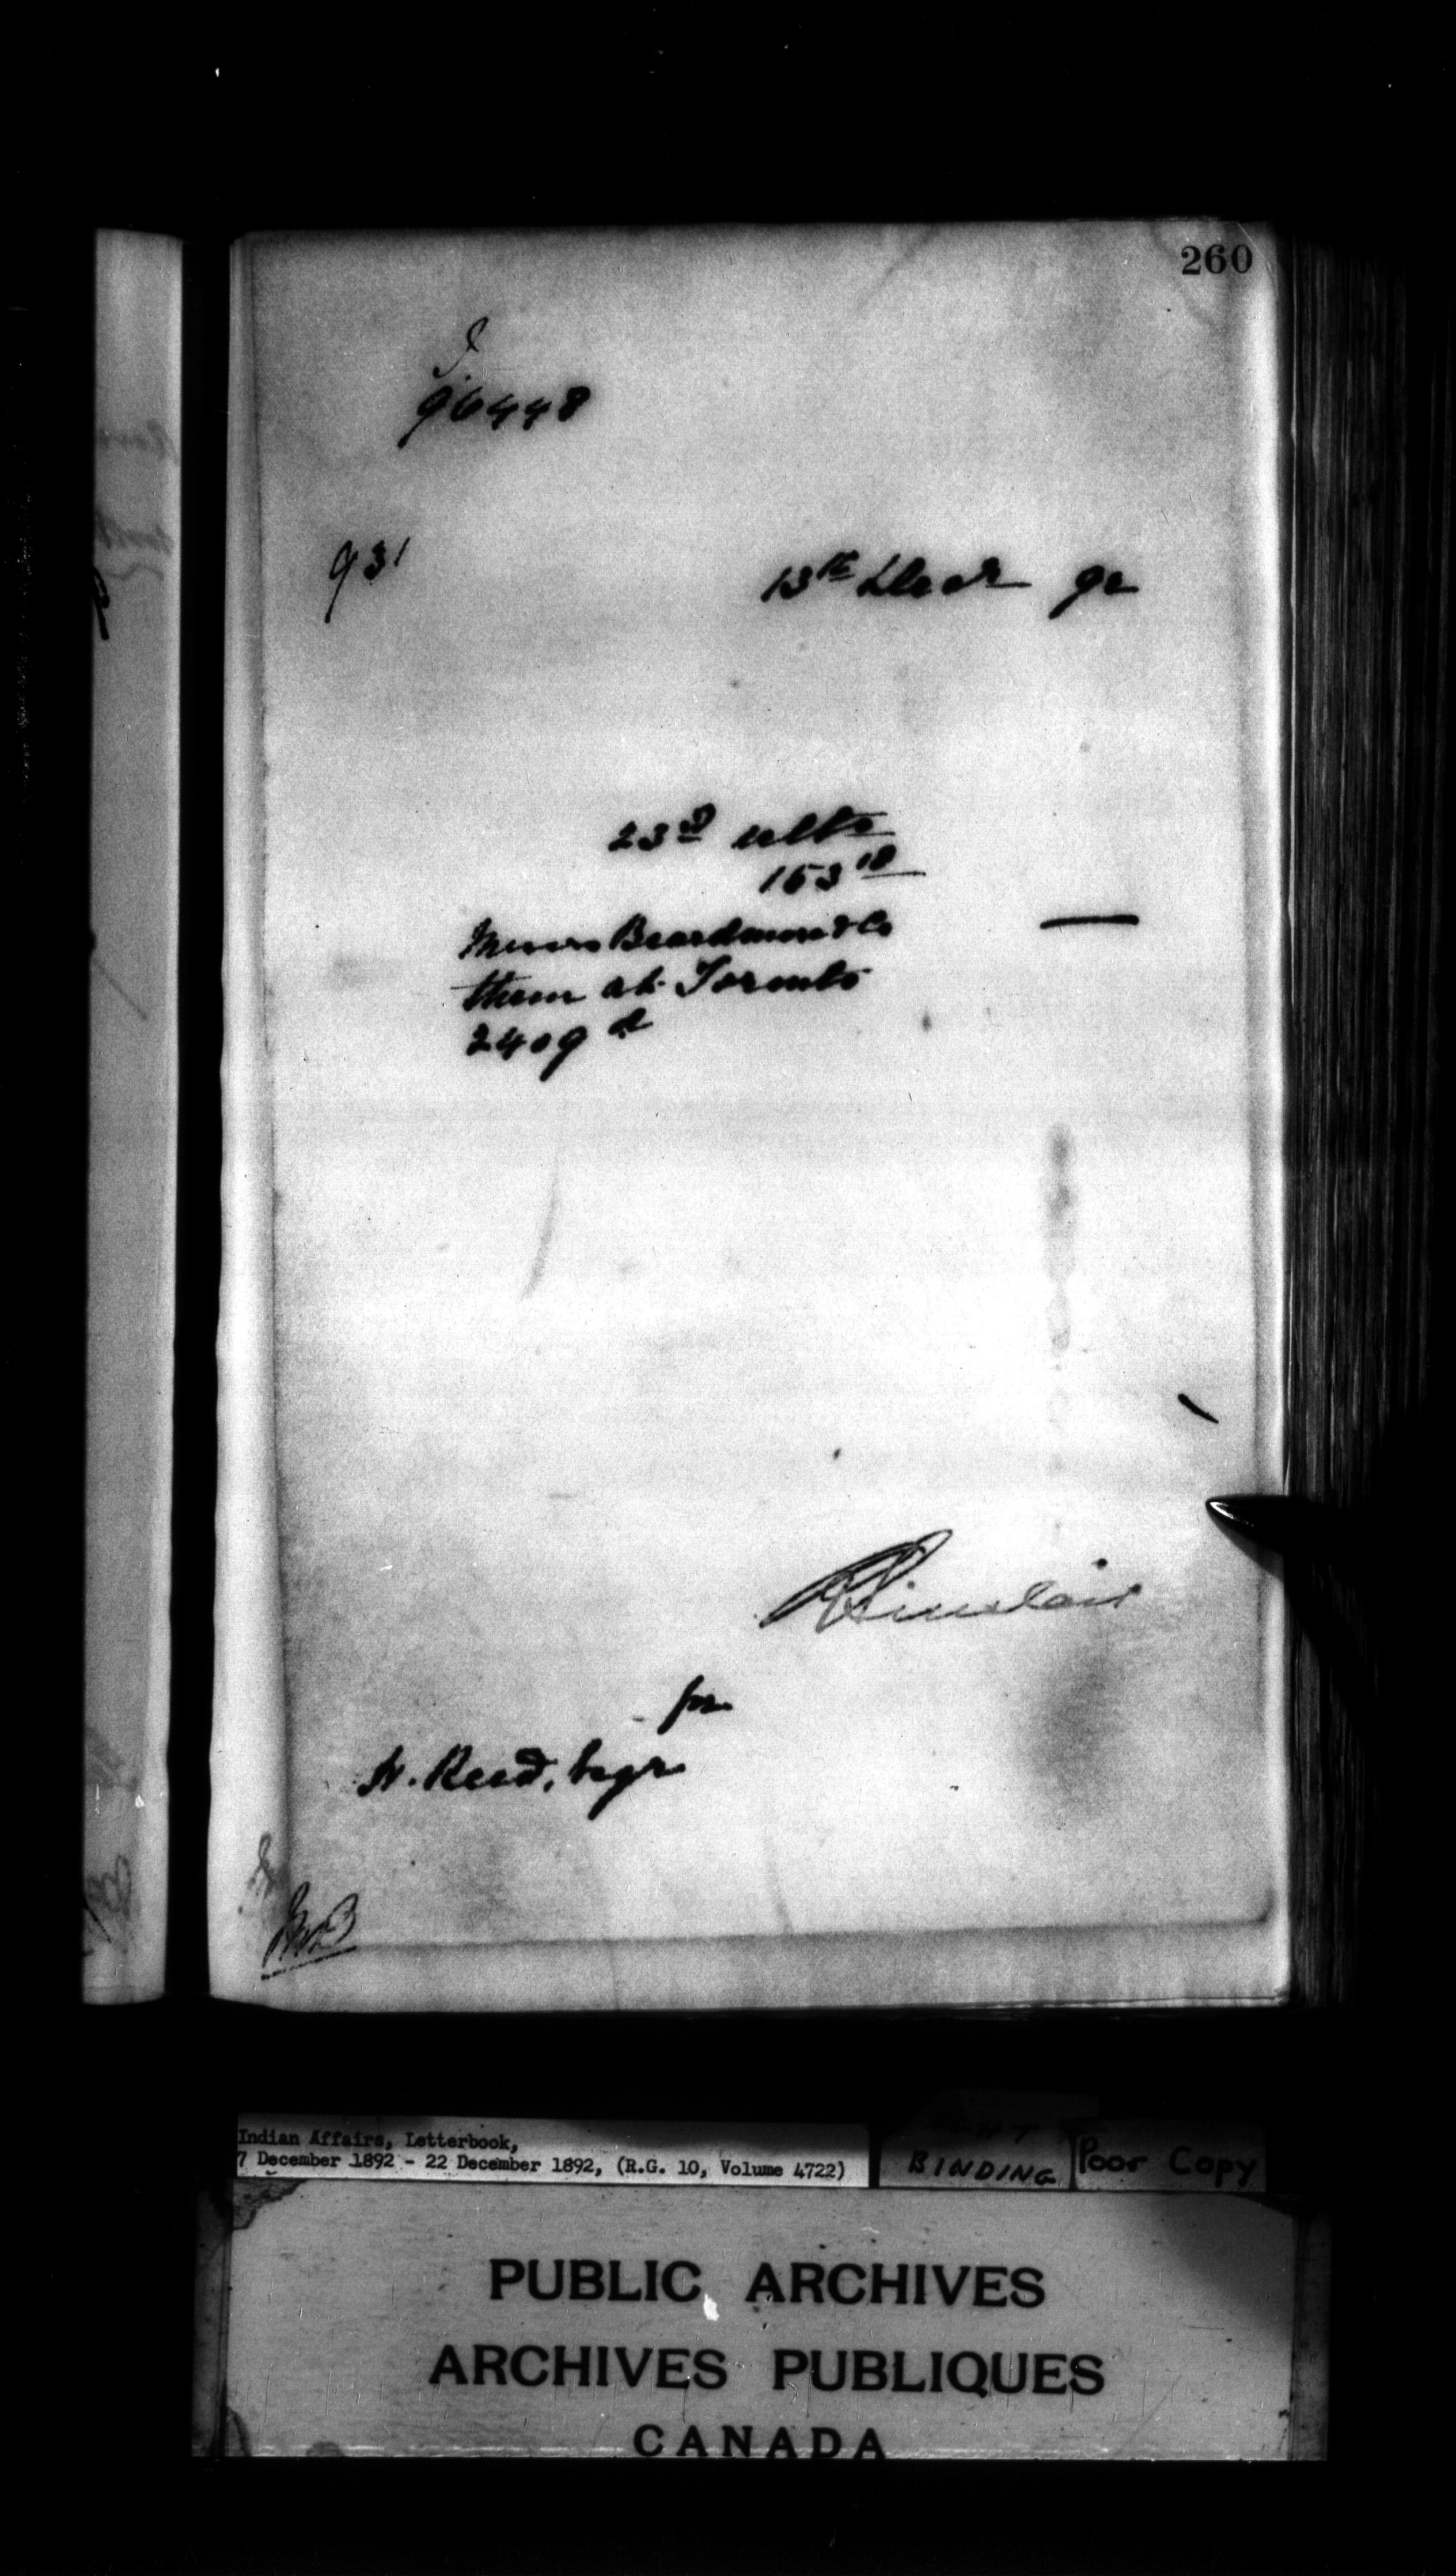 260
96448
931
13th Decr 92
23d ulto
153 18
Messrs Beardmore & Co
them at Toronto
2409
Sinclair
for
H. Reed, Esqr
Indian Affairs, Letterbook,
7 December 1892 - 22 December 1892, (R.G. 10, Volume 4722)
BINDING
Poor Copy
PUBLIC ARCHIVES
ARCHIVES PUBLIQUES
CANADA